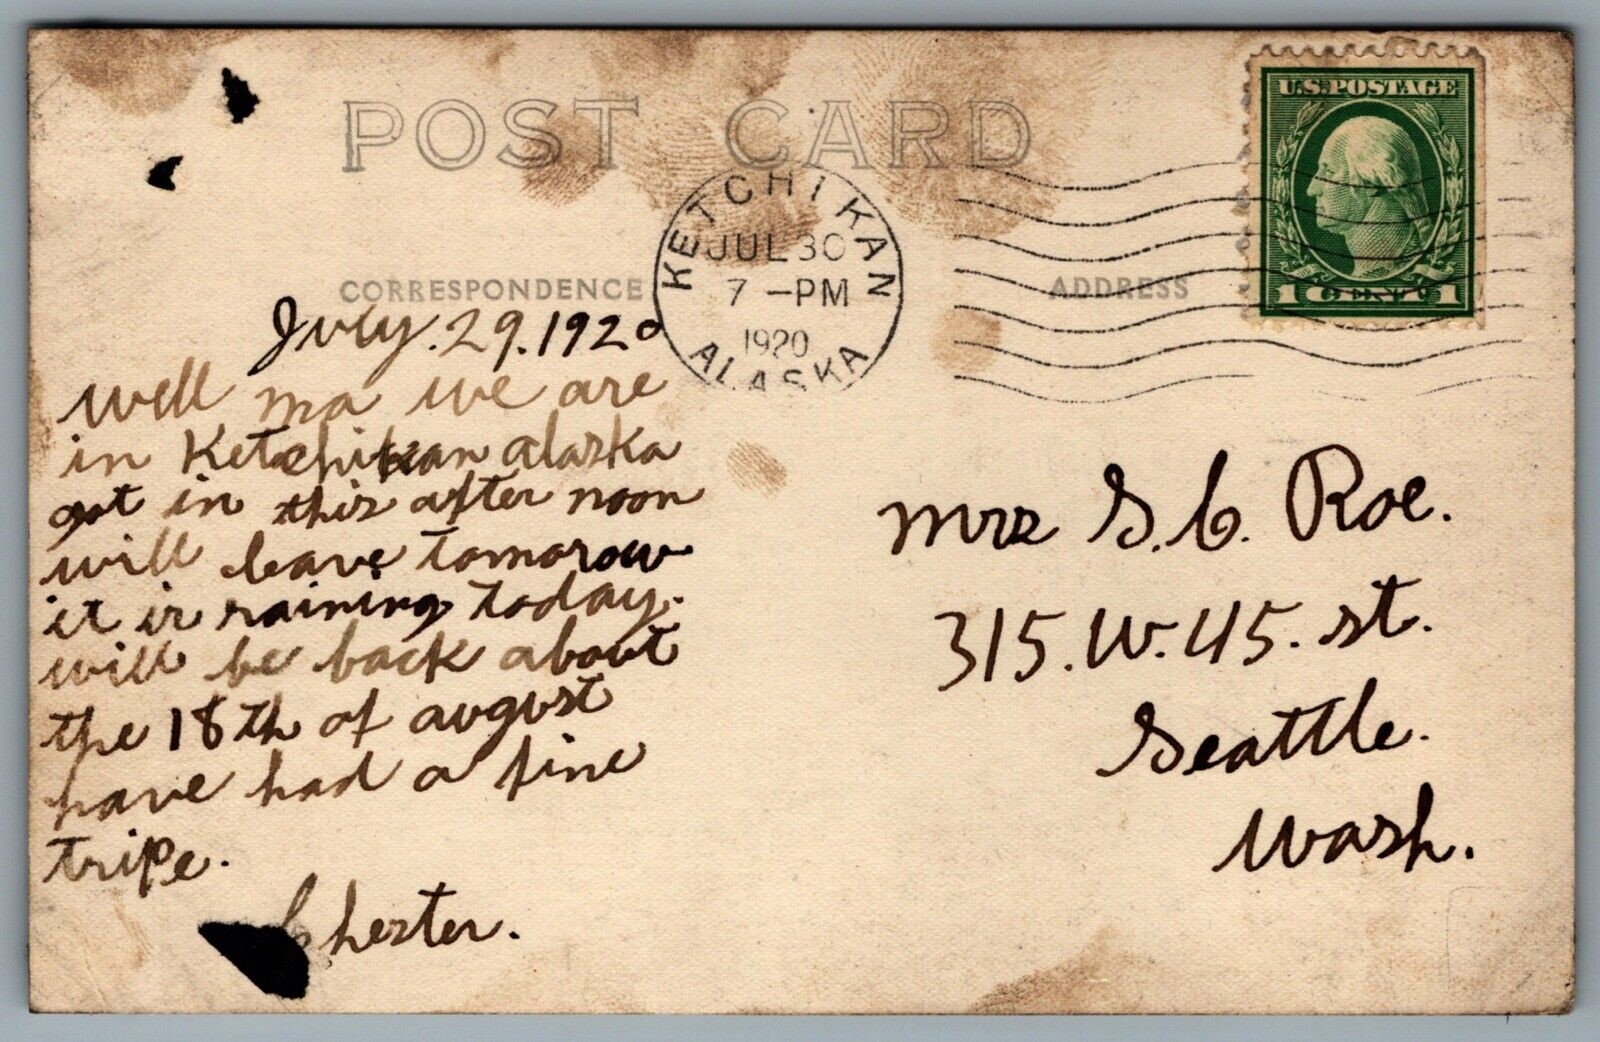 POST CARD
U.S. POSTAGE
1 CENT 1
KETCHIKAN
JUL 30
7 - PM
1920
ALASKA
CORRESPONDENCE
ADDRESS
July. 29. 1920
well ma we are
in Ketchikan alaska
got in this after noon
will leave tomorow
it is raining today.
will be back about
the 18th of august
have had a fine
tripe.
Chester.
Mrs S. C. Roe.
315. W. 45. st.
Seattle.
Wash.